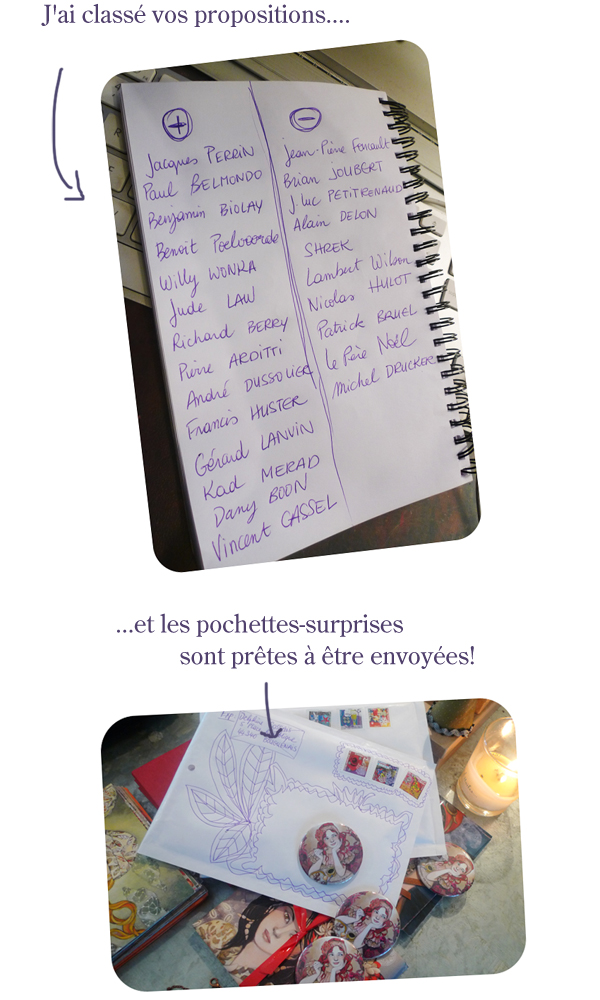 J'ai classé vos propositions....
+
Jacques PERRIN
Paul BELMONDO
Benjamin BIOLAY
Benoit Poelvoorde
Willy WONKA
Jude LAW
Richard BERRY
Pierre ARDITTI
André DUSSOLIER
Francis HUSTER
Gérard LANVIN
Kad MERAD
Dany BOON
Vincent CASSEL
-
Jean-Pierre Foucault
Brian JOUBERT
J-Luc PETITRENAUD
Alain DELON
SHREK
Lambert Wilson
Nicolas HULOT
Patrick BRUEL
Le Père Noël
Michel DRUCKER
...et les pochettes-surprises
sont prêtes à être envoyées!